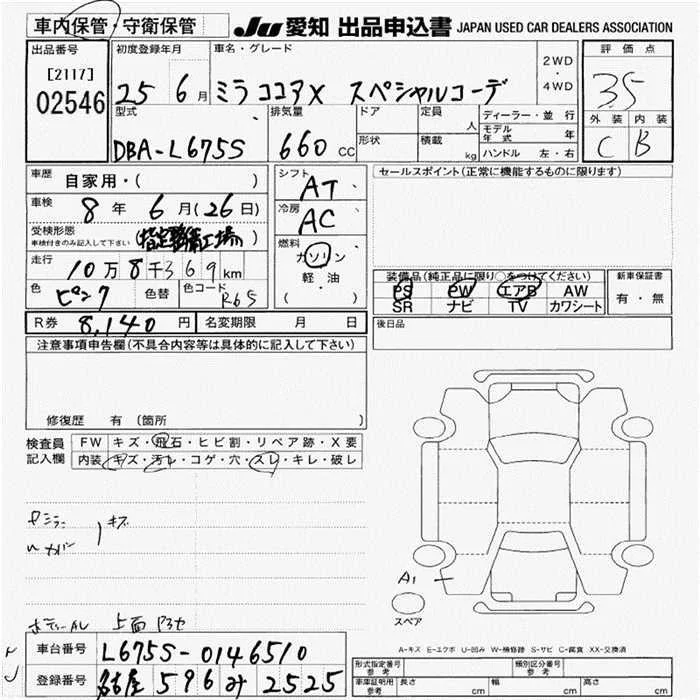 車内保管・守衛保管 JU 愛知 出品申込書 JAPAN USED CAR DEALERS ASSOCIATION
出品番号 初度登録年月 車名・グレード 2WD・4WD 評価点
[2117]
02546 25 6月 ミラココアX スペシャルコーデ 35
型式 排気量 ドア 定員 人 ディーラー・並行 外装 内装
DBA-L675S 660cc 形状 積載 kg モデル年式 年 C B
ハンドル 左・右
車歴 自家用・( ) シフト AT セールスポイント(正常に機能するものに限ります)
車検 8年 6月(26日) 冷房 AC
受検形態 車検付きのみ記入して下さい (指定整備工場) 燃料 ガソリン
走行 10万8千369km 軽・油
色 ピンク 色替 色コード R65 ( )
装備品(純正品に限り○をつけてください) 新車保証書
PS PW エアB AW 有・無
SR ナビ TV カワシート
R券 8,140円 名変期限 月 日 後日品
注意事項申告欄(不具合内容等は具体的に記入して下さい)
修復歴 有 (箇所 )
検査員記入欄 FW キズ・飛石・ヒビ割・リペア跡・X要
内装 キズ・汚れ・コゲ・穴・スレ・キレ・破レ
キズ
A1
スペア
上面
A-キズ E-エクボ U-凹み W-補修跡 S-サビ C-腐食 XX-交換済
車台番号 L675S-0146510 形式指定番号 参考 類別区分番号 参考
登録番号 名古屋 596 み 2525 車庫証明用 参考 長さ cm 幅 cm 高さ cm